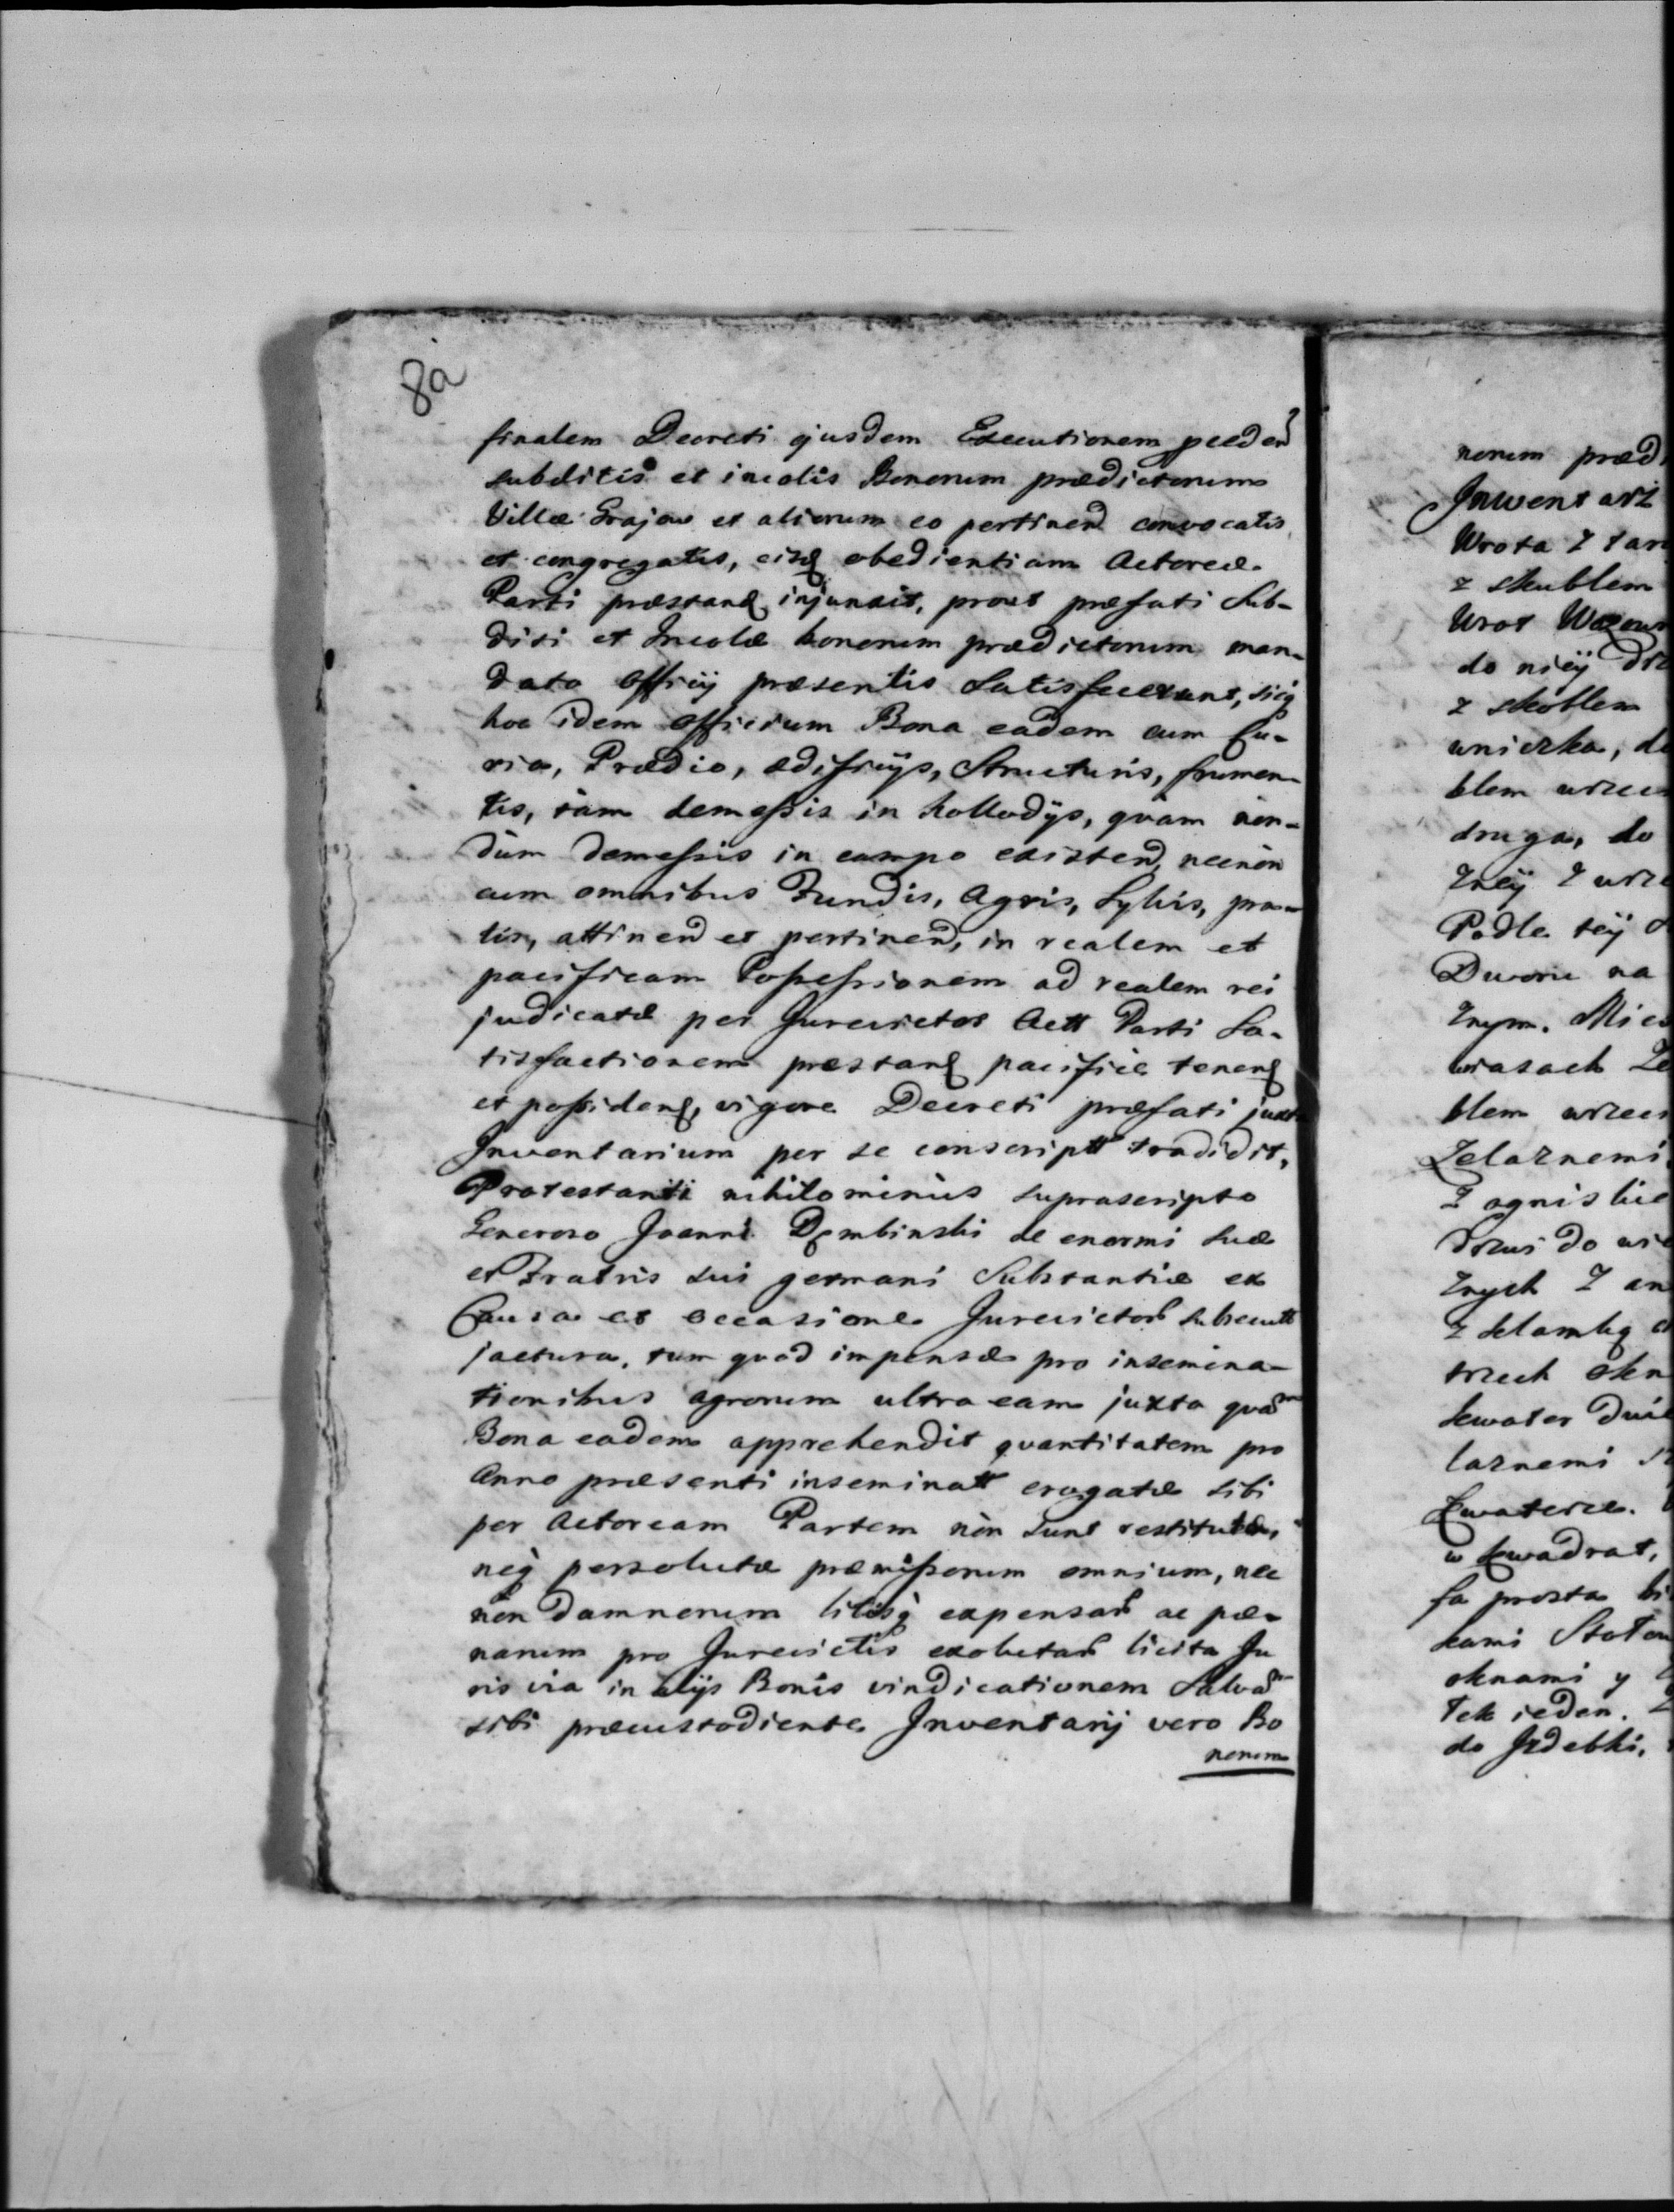 8a
finalem Decreti ejusdem Executionem pceden
subditis et incolis Bonorum prædictorum
Villæ Grajow et aliorum eo pertinen convocatis
et congregatis, eisq obedientiam Actoreæ
Parti præstand injunxit, prout præfati Sub-
diti et Incolæ bonorum prædictorum man-
dato Officij præsentis Satisfecerunt, sicq
hoc idem Officium Bona eadem cum Cu-
ria, Prædio, ædificijs, Structuris, frumen-
tis, tam demessis in kollodijs, quàm nòn-
dùm demessis in campo existen, necnòn
cum omnibus Fundis, Agris, Sylvis, pra-
tis, attinen et pertinen, in realem et
pacificam Possessionem ad realem rei
judicatæ per Jurevictos Actt Parti Sa-
tisfactionem præstand pacificè tenend
et possidend, vigore Decreti præfati juxta
Inventarium per se conscriptt tradidit,
Protestanti nihilominùs suprascripto
Generoso Joanni Dembinski de enormi suæ
et Fratris sui germani Substantiæ ex
Causa et occasione Jurevictor subsecutt
jactura, tum quod impensæ pro insemina-
tionibus agrorum ultra eam juxta quam
Bona eadem apprehendit quantitatem pro
Anno præsenti inseminatt erogatæ sibi
per Actoream Partem nòn sunt restitutæ,
neq persolutæ præmissorum omnium, nec
nòn damnorum litisq expensar ac pæ-
narum pro Jurevictis exolutar licita Ju
ris via in alijs Bonis vindicationem Salvam
sibi præcustodiente Inventarij vero Bo
norum
norum præd
Inwentarz
Wrota z tar
z skublem
Wrot
do niey drz
z skoblem
wniczka, d
blem wrzec
druga, do
zney z wrze
Podle tey
Dworu na
znym. Mies
wiasach Że
blem wrzec
Żelaznemi
z ogniskie
drzwi do wie
znych z an
z klamką
trzech okn
kwater dwie
laznemi
Kwaterce.
w kwadrat,
fa prosta
kami Stoło
oknami y
tek ieden.
do Izdebki,